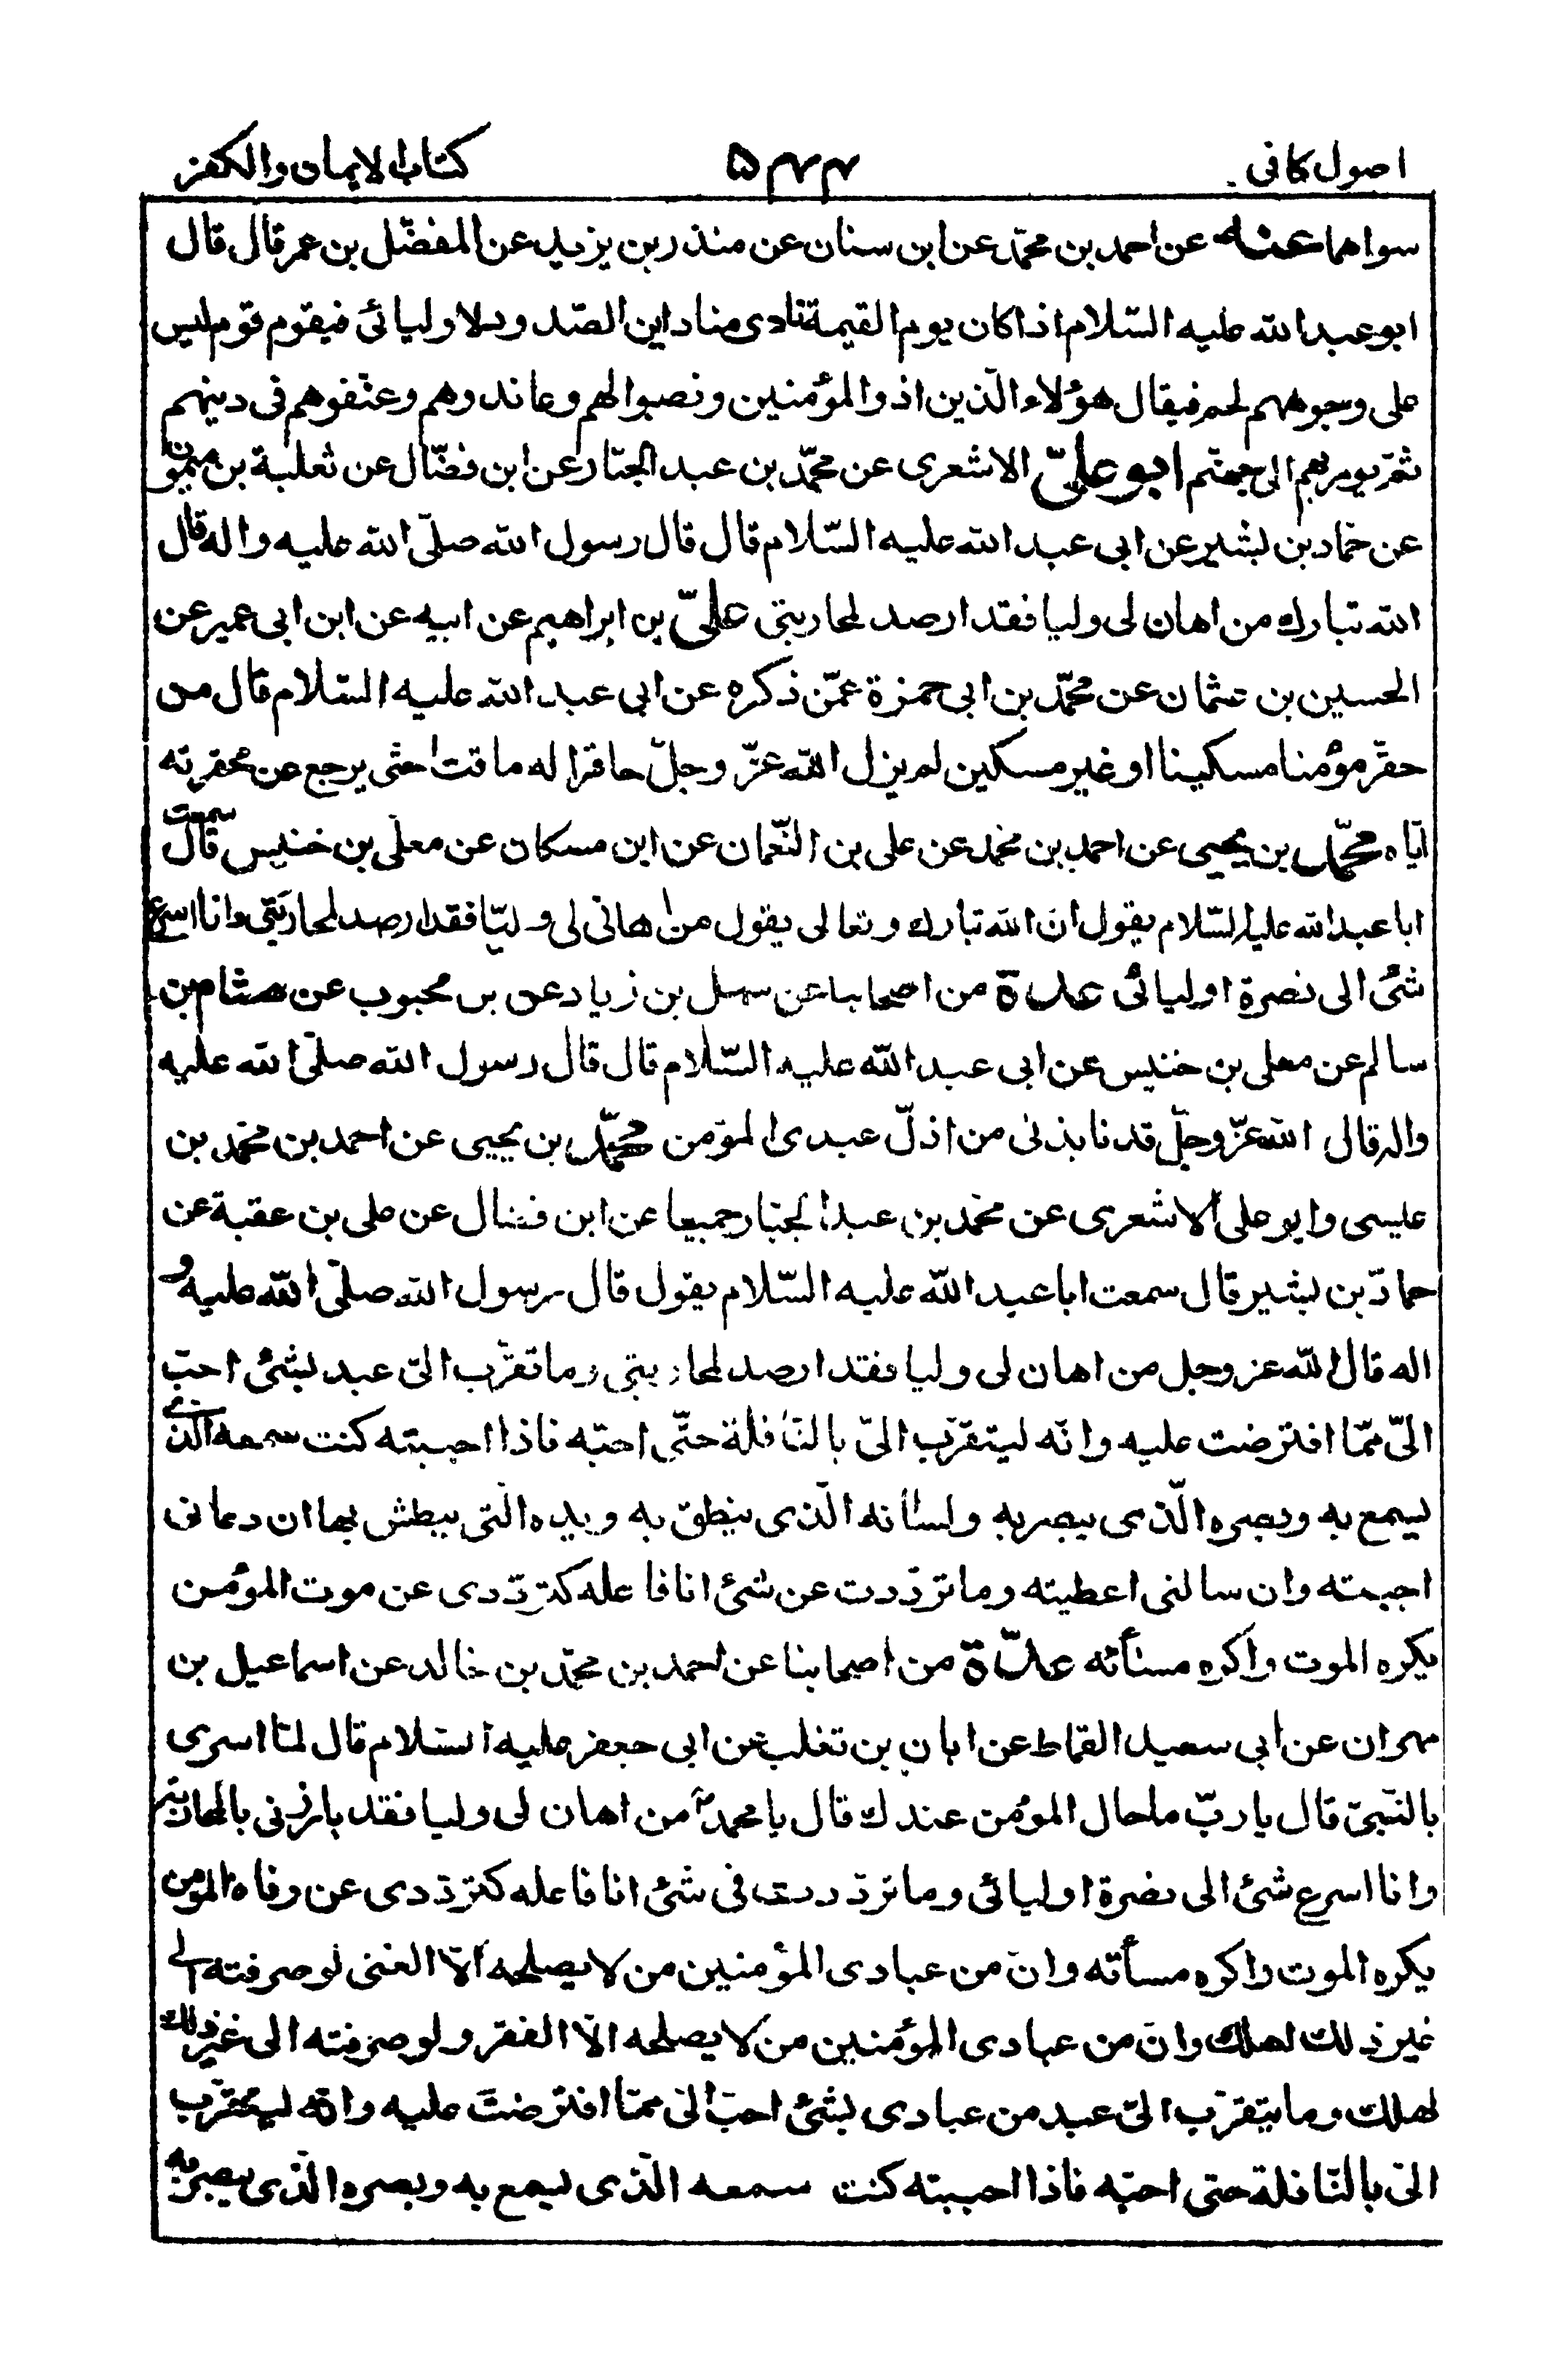 اصول كافى
۵۴۴
كتاب الايمان والكفر
سواهما عنه عن احمد بن محمّد عن ابن سنان عن منذر بن يزيد عن المفضّل بن عمر قال قال
ابو عبد الله عليه السّلام اذا كان يوم القيمة نادى مناد اين الصّدود لاوليائى فيقوم قوم ليس
على وجوههم لحم فيقال هؤلاء الّذين اذوا المؤمنين ونصبوا لهم وعاندوهم وعنّفوهم فى دينهم
ثمّ يومر بهم الى جهنّم ابو علىّ الاشعرى عن محمّد بن عبد الجبّار عن ابن فضّال عن ثعلبة بن ميمون
عن حمّاد بن بشير عن ابى عبد الله عليه السّلام قال قال رسول الله صلّى الله عليه واله قال
الله تبارك من اهان لى وليا فقد ارصد لمحاربتى علىّ بن ابراهيم عن ابيه عن ابن ابى عمير عن
الحسين بن عثمان عن محمّد بن ابى حمزة عمّن ذكره عن ابى عبد الله عليه السّلام قال من
حقّر مؤمنا مسكينا او غير مسكين لم يزل الله عزّ وجلّ حاقرا له ماقتا حتّى يرجع عن محقرته
ايّاه محمّد بن يحيى عن احمد بن محمّد عن على بن النّعمان عن ابن مسكان عن معلّى بن خنيس قال سمعت
ابا عبد الله عليه السّلام يقول انّ الله تبارك وتعالى يقول من اهانى لى وليّا فقد ارصد لمحاربتى وانا اسرع
شئ الى نصرة اوليائى عدة من اصحابنا عن سهل بن زياد عن بن محبوب عن هشام بن
سالم عن معلى بن خنيس عن ابى عبد الله عليه السّلام قال قال رسول الله صلّى الله عليه
واله قال الله عزّ وجلّ قد نابذنى من اذلّ عبدى المؤمن محمّد بن يحيى عن احمد بن محمّد بن
عليسى وابو على الاشعرى عن محمّد بن عبد الجبّار جميعا عن ابن فضال عن على بن عقبة عن
حمادّ بن بشير قال سمعت ابا عبد الله عليه السّلام يقول قال رسول الله صلّى الله عليه و
اله قال الله عز وجل من اهان لى وليا فقد ارصد لمحاربتى وما تقرّب الىّ عبد بشئ احبّ
الىّ ممّا افترضت عليه وانّه ليتقرّب الىّ بالنّافلة حتّى احبّه فاذا احببته كنت سمعه الّذى
يسمع به وبصره الّذى يبصر به ولسانه الّذى ينطق به ويده الّتى يبطش بها ان دعانى
اجبته وان سالنى اعطيته وما تردّدت عن شئ انا فاعله كتردّدى عن موت المؤمن
يكره الموت واكره مسائته عدّة من اصحابنا عن احمد بن محمّد بن خالد عن اسماعيل بن
مهران عن ابى سعيد القماط عن ابان بن تغلب عن ابى جعفر عليه السّلام قال لمّا اسرى
بالنّبىّ قال يا ربّ ما حال المؤمن عندك قال يا محمد من اهان لى وليا فقد بارزنى بالمحاربة
وانا اسرع شئ الى نصرة اوليائى وما تردّدت فى شئ انا فاعله كتردّدى عن وفاه المؤمن
يكره الموت واكره مسأته وانّ من عبادى المؤمنين من لا يصلحه الّا الغنى لو صرفته الى
غير ذلك لهلك وانّ من عبادى المؤمنين من لا يصلحه الّا الفقر ولو صرفته الى غير ذلك
لهلك وما يتقرّب الىّ عبد من عبادى بشئ احبّ الىّ ممّا افترضت عليه وانّه ليتقرّب
الىّ بالنّافلة حتى احبّه فاذا احببته كنت سمعه الّذى يسمع به وبصره الّذى يبصر به